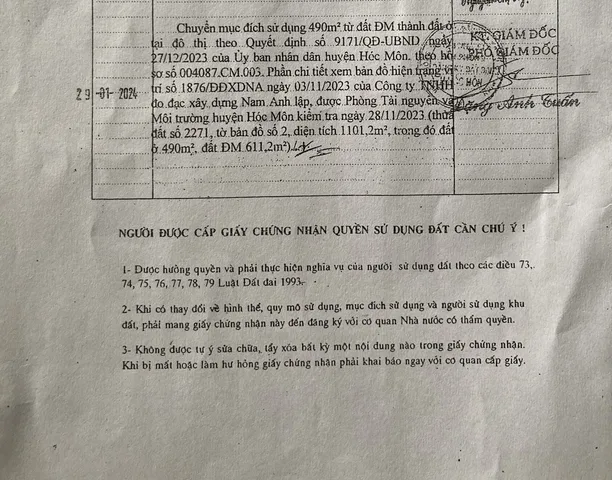 Chuyển mục đích sử dụng 490m² từ đất ĐM thành đất ở
tại đô thị theo Quyết định số 9171/QĐ-UBND ngày
27/12/2023 của Ủy ban nhân dân huyện Hóc Môn. theo hồ
sơ số 004087.CM.003. Phần chi tiết xem bản đồ hiện trạng vị
trí số 1876/ĐĐXDNA ngày 03/11/2023 của Công ty TNHH
đo đạc xây dựng Nam Anh lập, được Phòng Tài nguyên và
Môi trường huyện Hóc Môn kiểm tra ngày 28/11/2023 (thửa
đất số 2271, tờ bản đồ số 2, diện tích 1101,2m², trong đó đất
ở 490m², đất ĐM 611,2m²)
29-01-2024
KT. GIÁM ĐỐC
PHÓ GIÁM ĐỐC
Đặng Anh Tuấn
NGƯỜI ĐƯỢC CẤP GIẤY CHỨNG NHẬN QUYỀN SỬ DỤNG ĐẤT CẦN CHÚ Ý !
1- Được hưởng quyền và phải thực hiện nghĩa vụ của người sử dụng đất theo các điều 73,
74, 75, 76, 77, 78, 79 Luật Đất đai 1993.
2- Khi có thay đổi về hình thể, quy mô sử dụng, mục đích sử dụng và người sử dụng khu
đất, phải mang giấy chứng nhận này đến đăng ký với cơ quan Nhà nước có thẩm quyền.
3- Không được tự ý sửa chữa, tẩy xóa bất kỳ một nội dung nào trong giấy chứng nhận.
Khi bị mất hoặc làm hư hỏng giấy chứng nhận phải khai báo ngay với cơ quan cấp giấy.